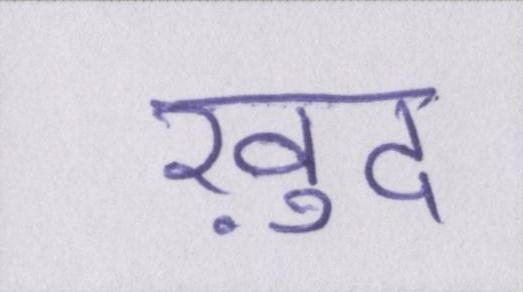 ख़ुद